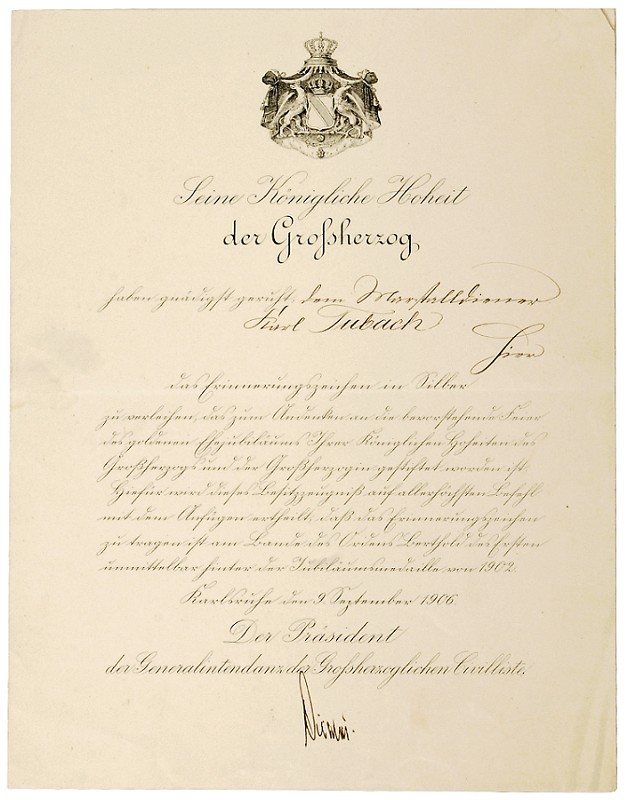 Seine Königliche Hoheit
der Großherzog
haben gnädigst geruht, dem Marstalldiener
Karl Tubach
hier
das Erinnerungszeichen in Silber
zu verleihen, das zum Andenken an die bevorstehende Feier
des goldenen Ehejubiläums Ihrer Königlichen Hoheiten des
Großherzogs und der Großherzogin gestiftet worden ist.
Hiefür wird dieses Besitzzeugniß auf allerhöchsten Befehl
mit dem Anfügen ertheilt, daß das Erinnerungszeichen
zu tragen ist am Bande des Ordens Berthold des Ersten
unmittelbar hinter der Jubiläumsmedaille von 1902.
Karlsruhe den 9. September 1906.
Der Präsident
der Generalintendanz der Großherzoglichen Civilliste.